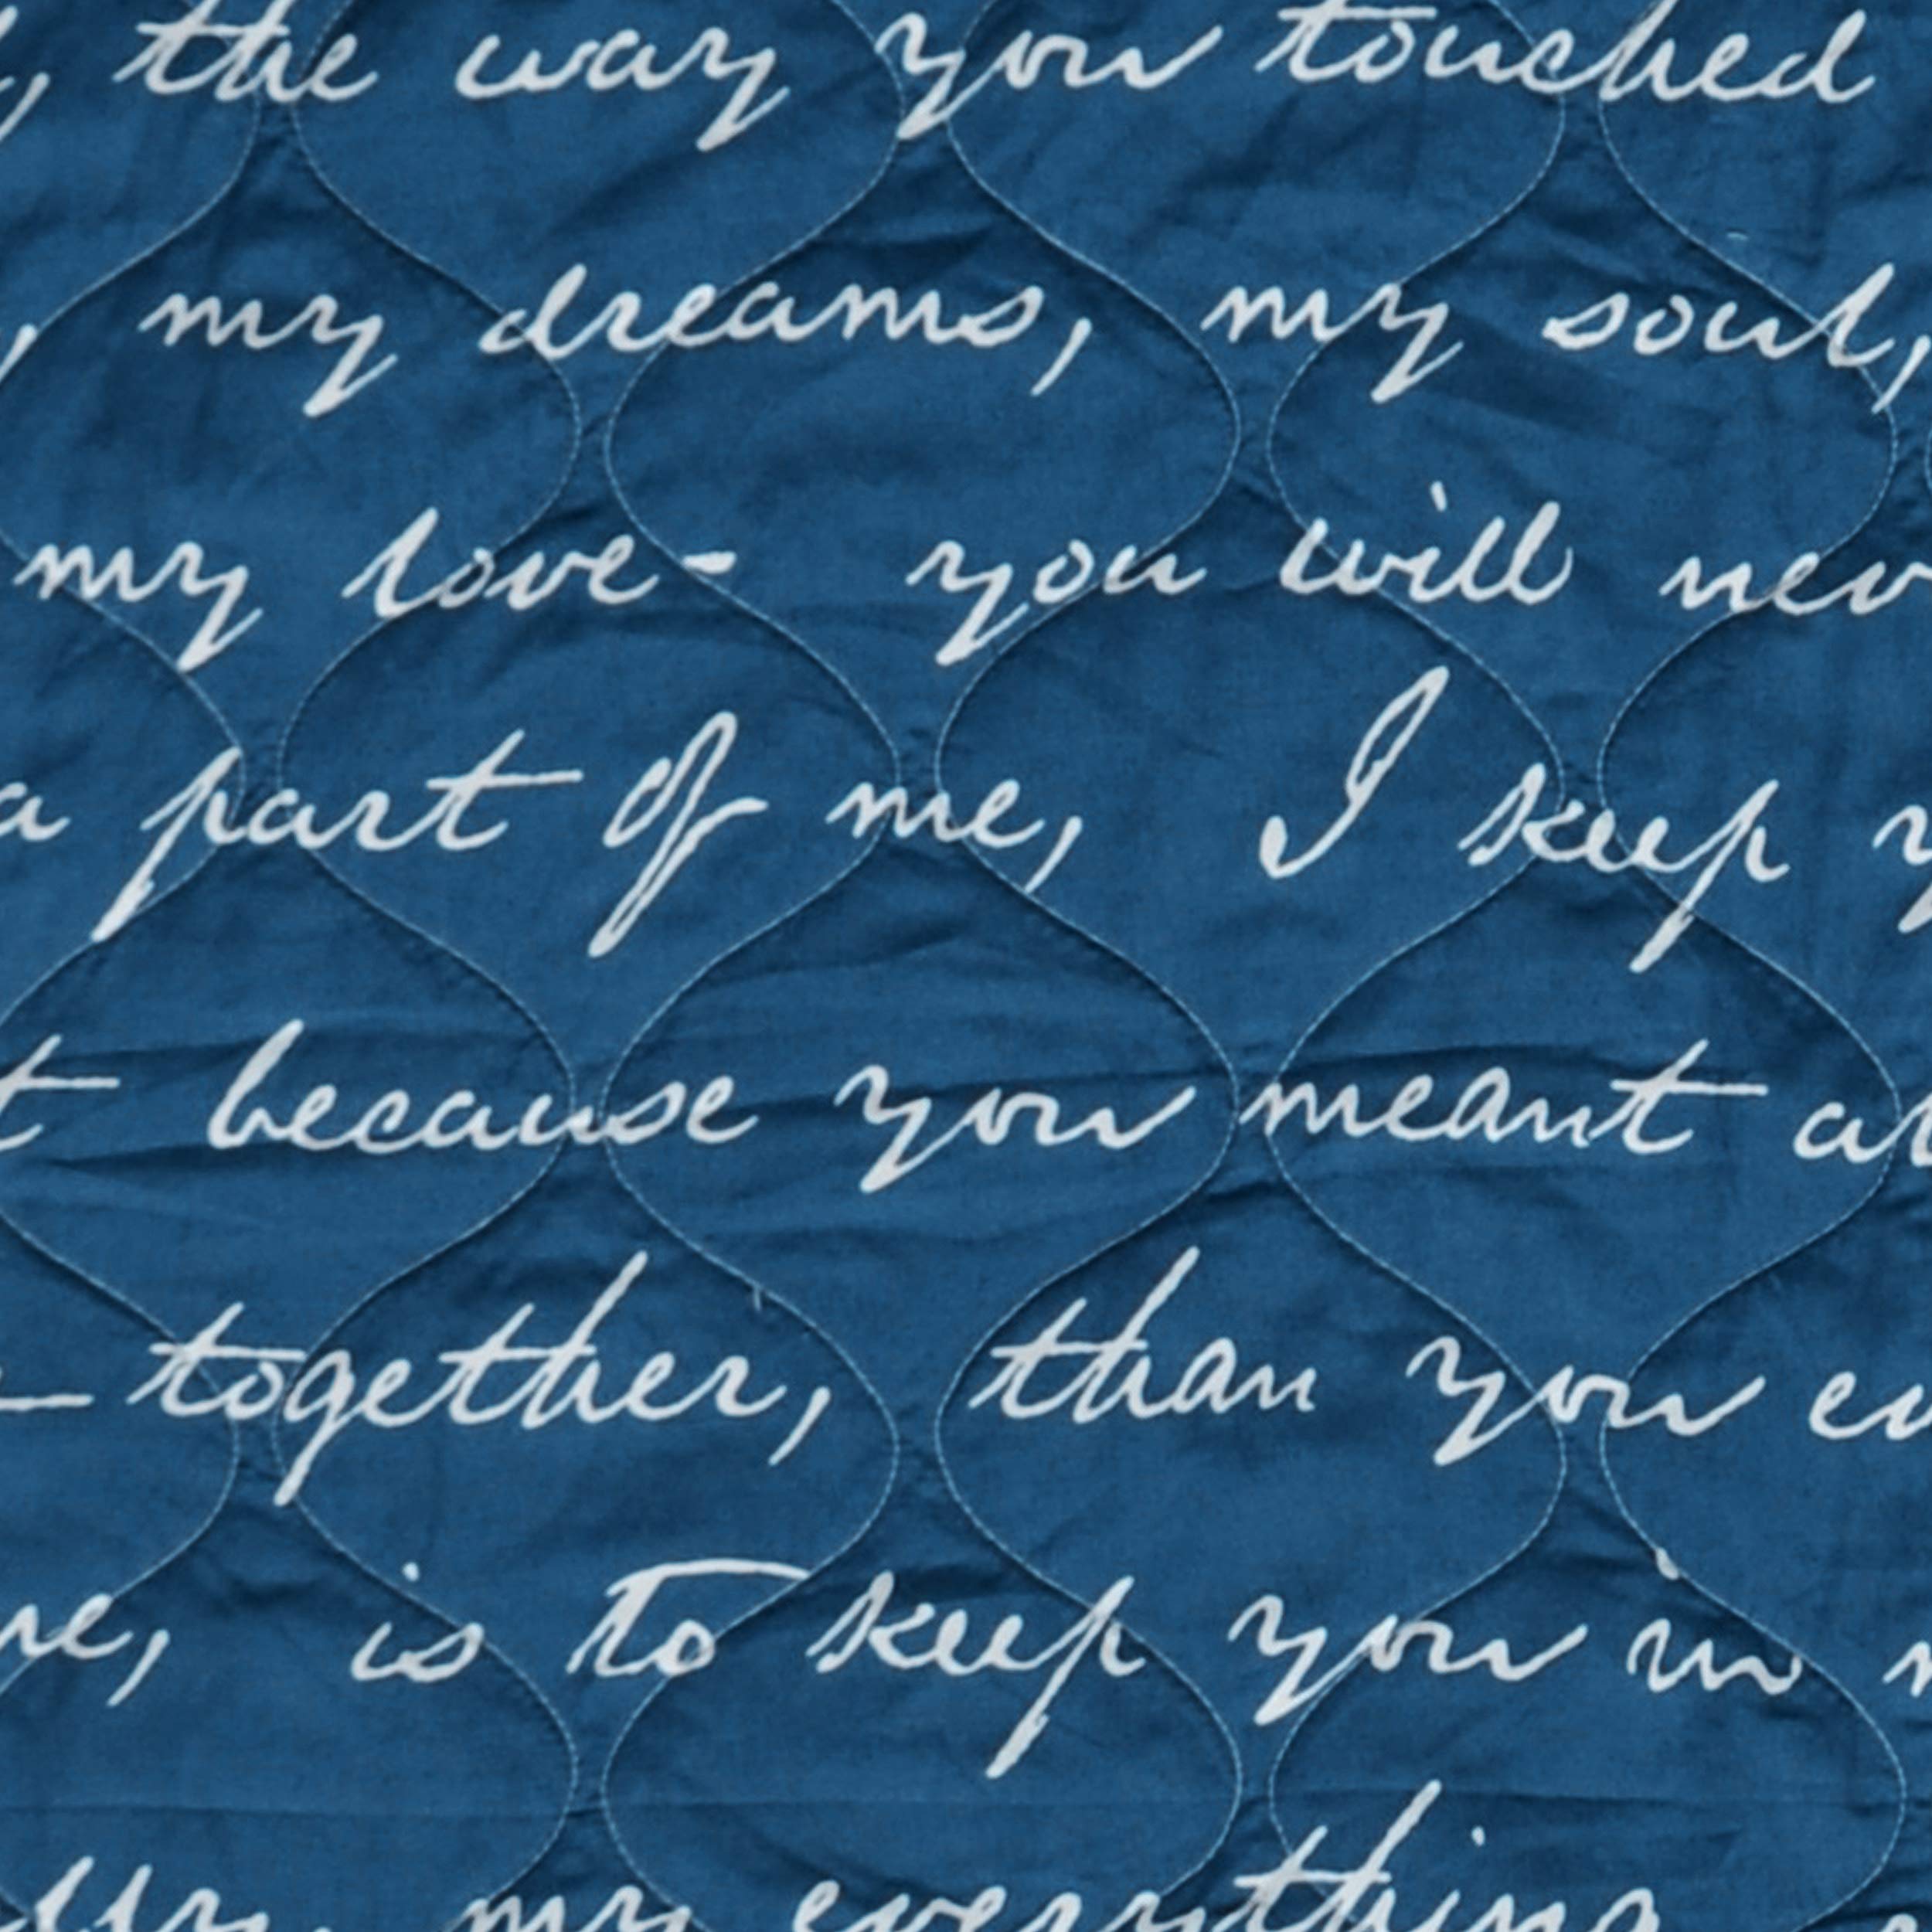 , the way you touched
, my dreams, my soul,
my love- you will nev
a part of me, I keep y
t because you meant al
together, than you ev
re, is to keep you in m
my everything